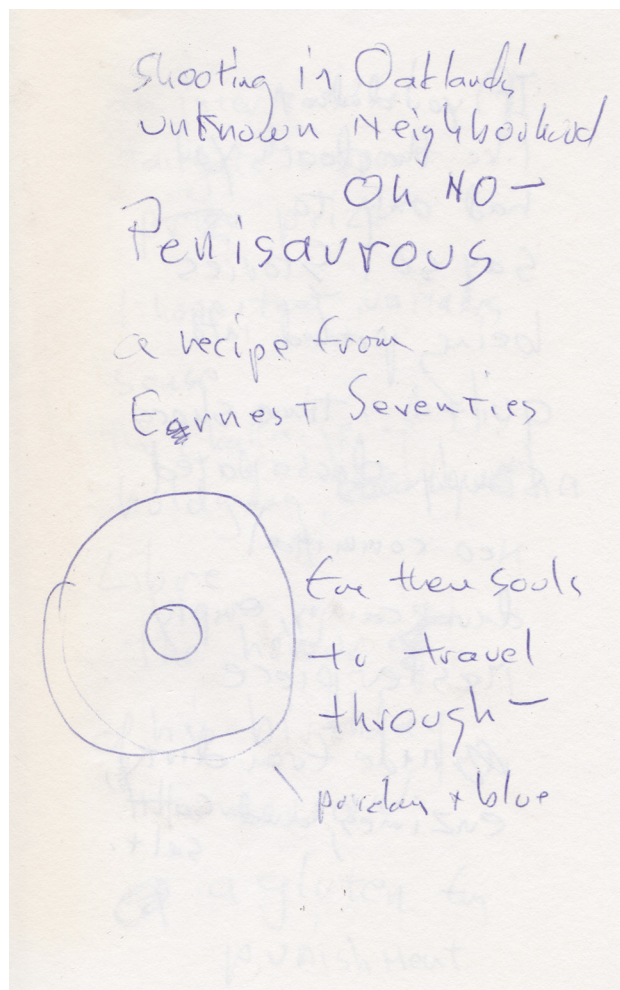 Shooting in Oakland's
unknown Neighborhood
Oh NO—
Penisaurous
a recipe from
Earnest Seventies
For their souls
to travel
through—
+ blue